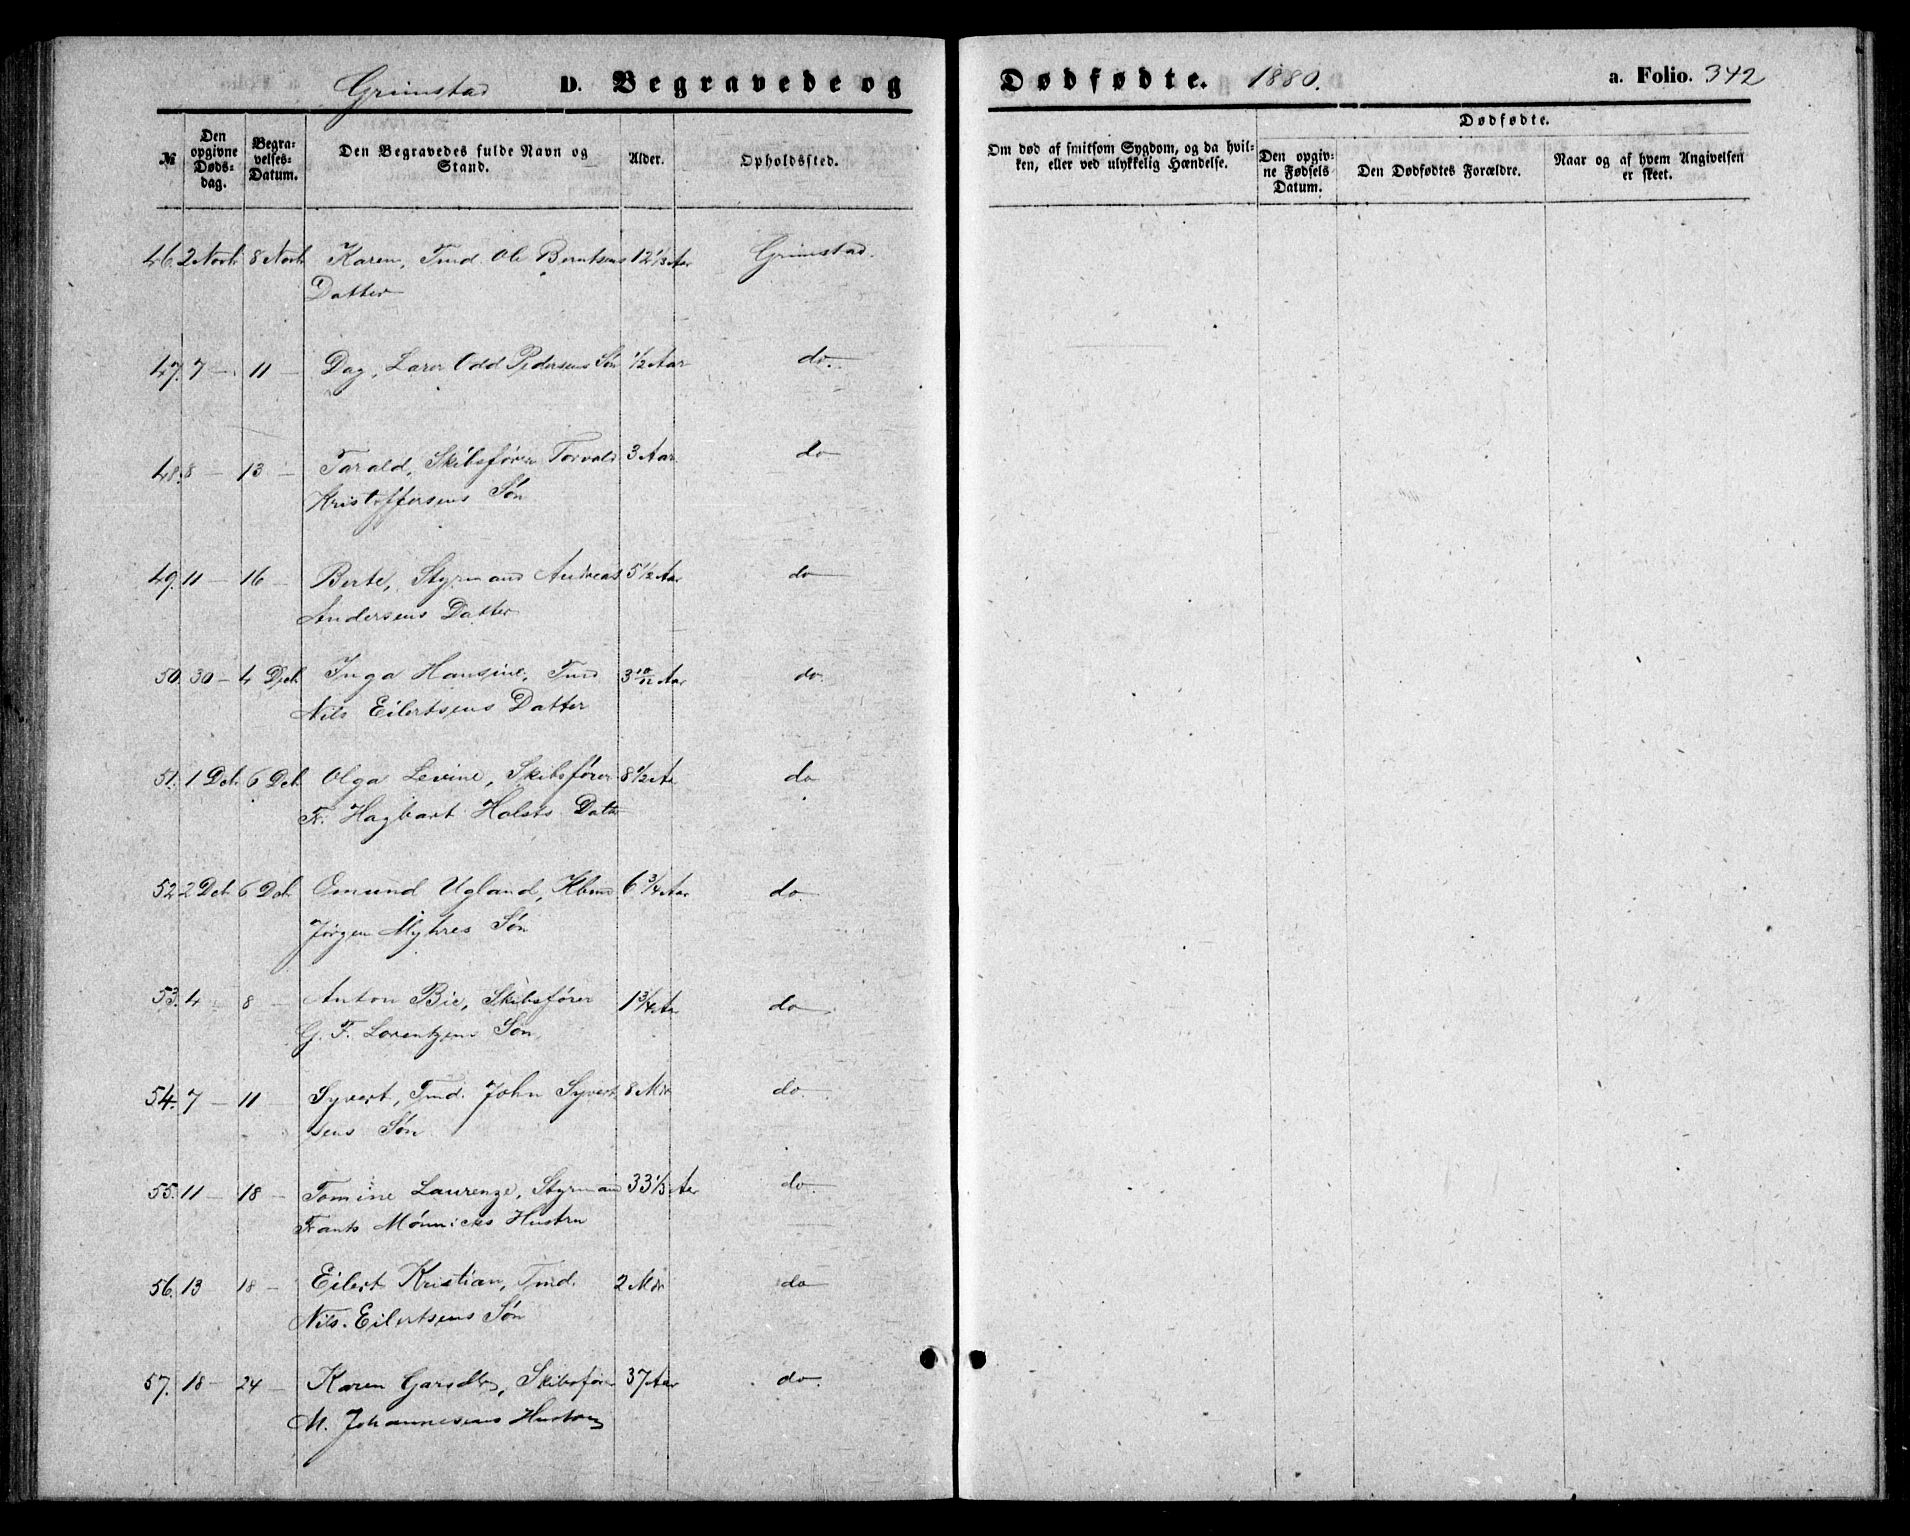 Grimstad D. Begravede og Dødfødte. 1880. a. Folio. 342
№ Den opgivne Døds-dag. Begra-velses-Datum. Den Begravedes fulde Navn og Stand. Alder. Opholdssted. Om død af smitsom Sygdom, og da hvil-ken, eller ved ulykkelig Hændelse. Dødfødte. Den opgiv-ne Fødsels Datum. Den Dødfødtes Forældre. Naar og af hvem Angivelsen er skeet.
46. 2 Novb. 8 Novb. Karen, Tmd. Ole Berntsens 12 1/3 Aar Grimstad.
Datter
47. 7 – 11 – Dag, Lærer Odd Pedersens Søn 1/2 Aar do.
48. 8 – 13 – Tarald, Skibsfører Torvald 3 Aar do
Kristoffersens Søn
49. 11 – 16 – Berte, Styrmand Andreas 5 1/2 Aar do
Andersens Datter
50. 30 – 4 Dcb. Inga Hansine, Tmd. 3 10/12 Aar do.
Nils Eilertsens Datter
51. 1 Dcb. 6 Dcb. Olga Levine, Skibsfører 8 1/2 Aa do
Fr. Hagbart Holsts Datt
52. 2 Dcb. 6 Dcb. Omund Ugland, Kbmd 6 3/4 Aar do.
Jørgen Myhres Søn
53. 4 – 8 – Anton Bie, Skibsfører 1 3/4 Aa do
G. F. Lorentzens Søn,
54. 7 – 11 – Syvert, Tmd. John Syvert 8 Mdr do.
sens Søn
55. 11 – 18 – Tomine Laurenze, Styrmand 33 1/3 Aar do.
Frants Mønnichs Hustru
56. 13 18 – Eilert Kristian, Tmd. 2 Mdr do
Nils Eilertsens Søn
57. 18 – 24 – Karen, Skibsfører 37 Aar do.
M. Johannesens Hustru